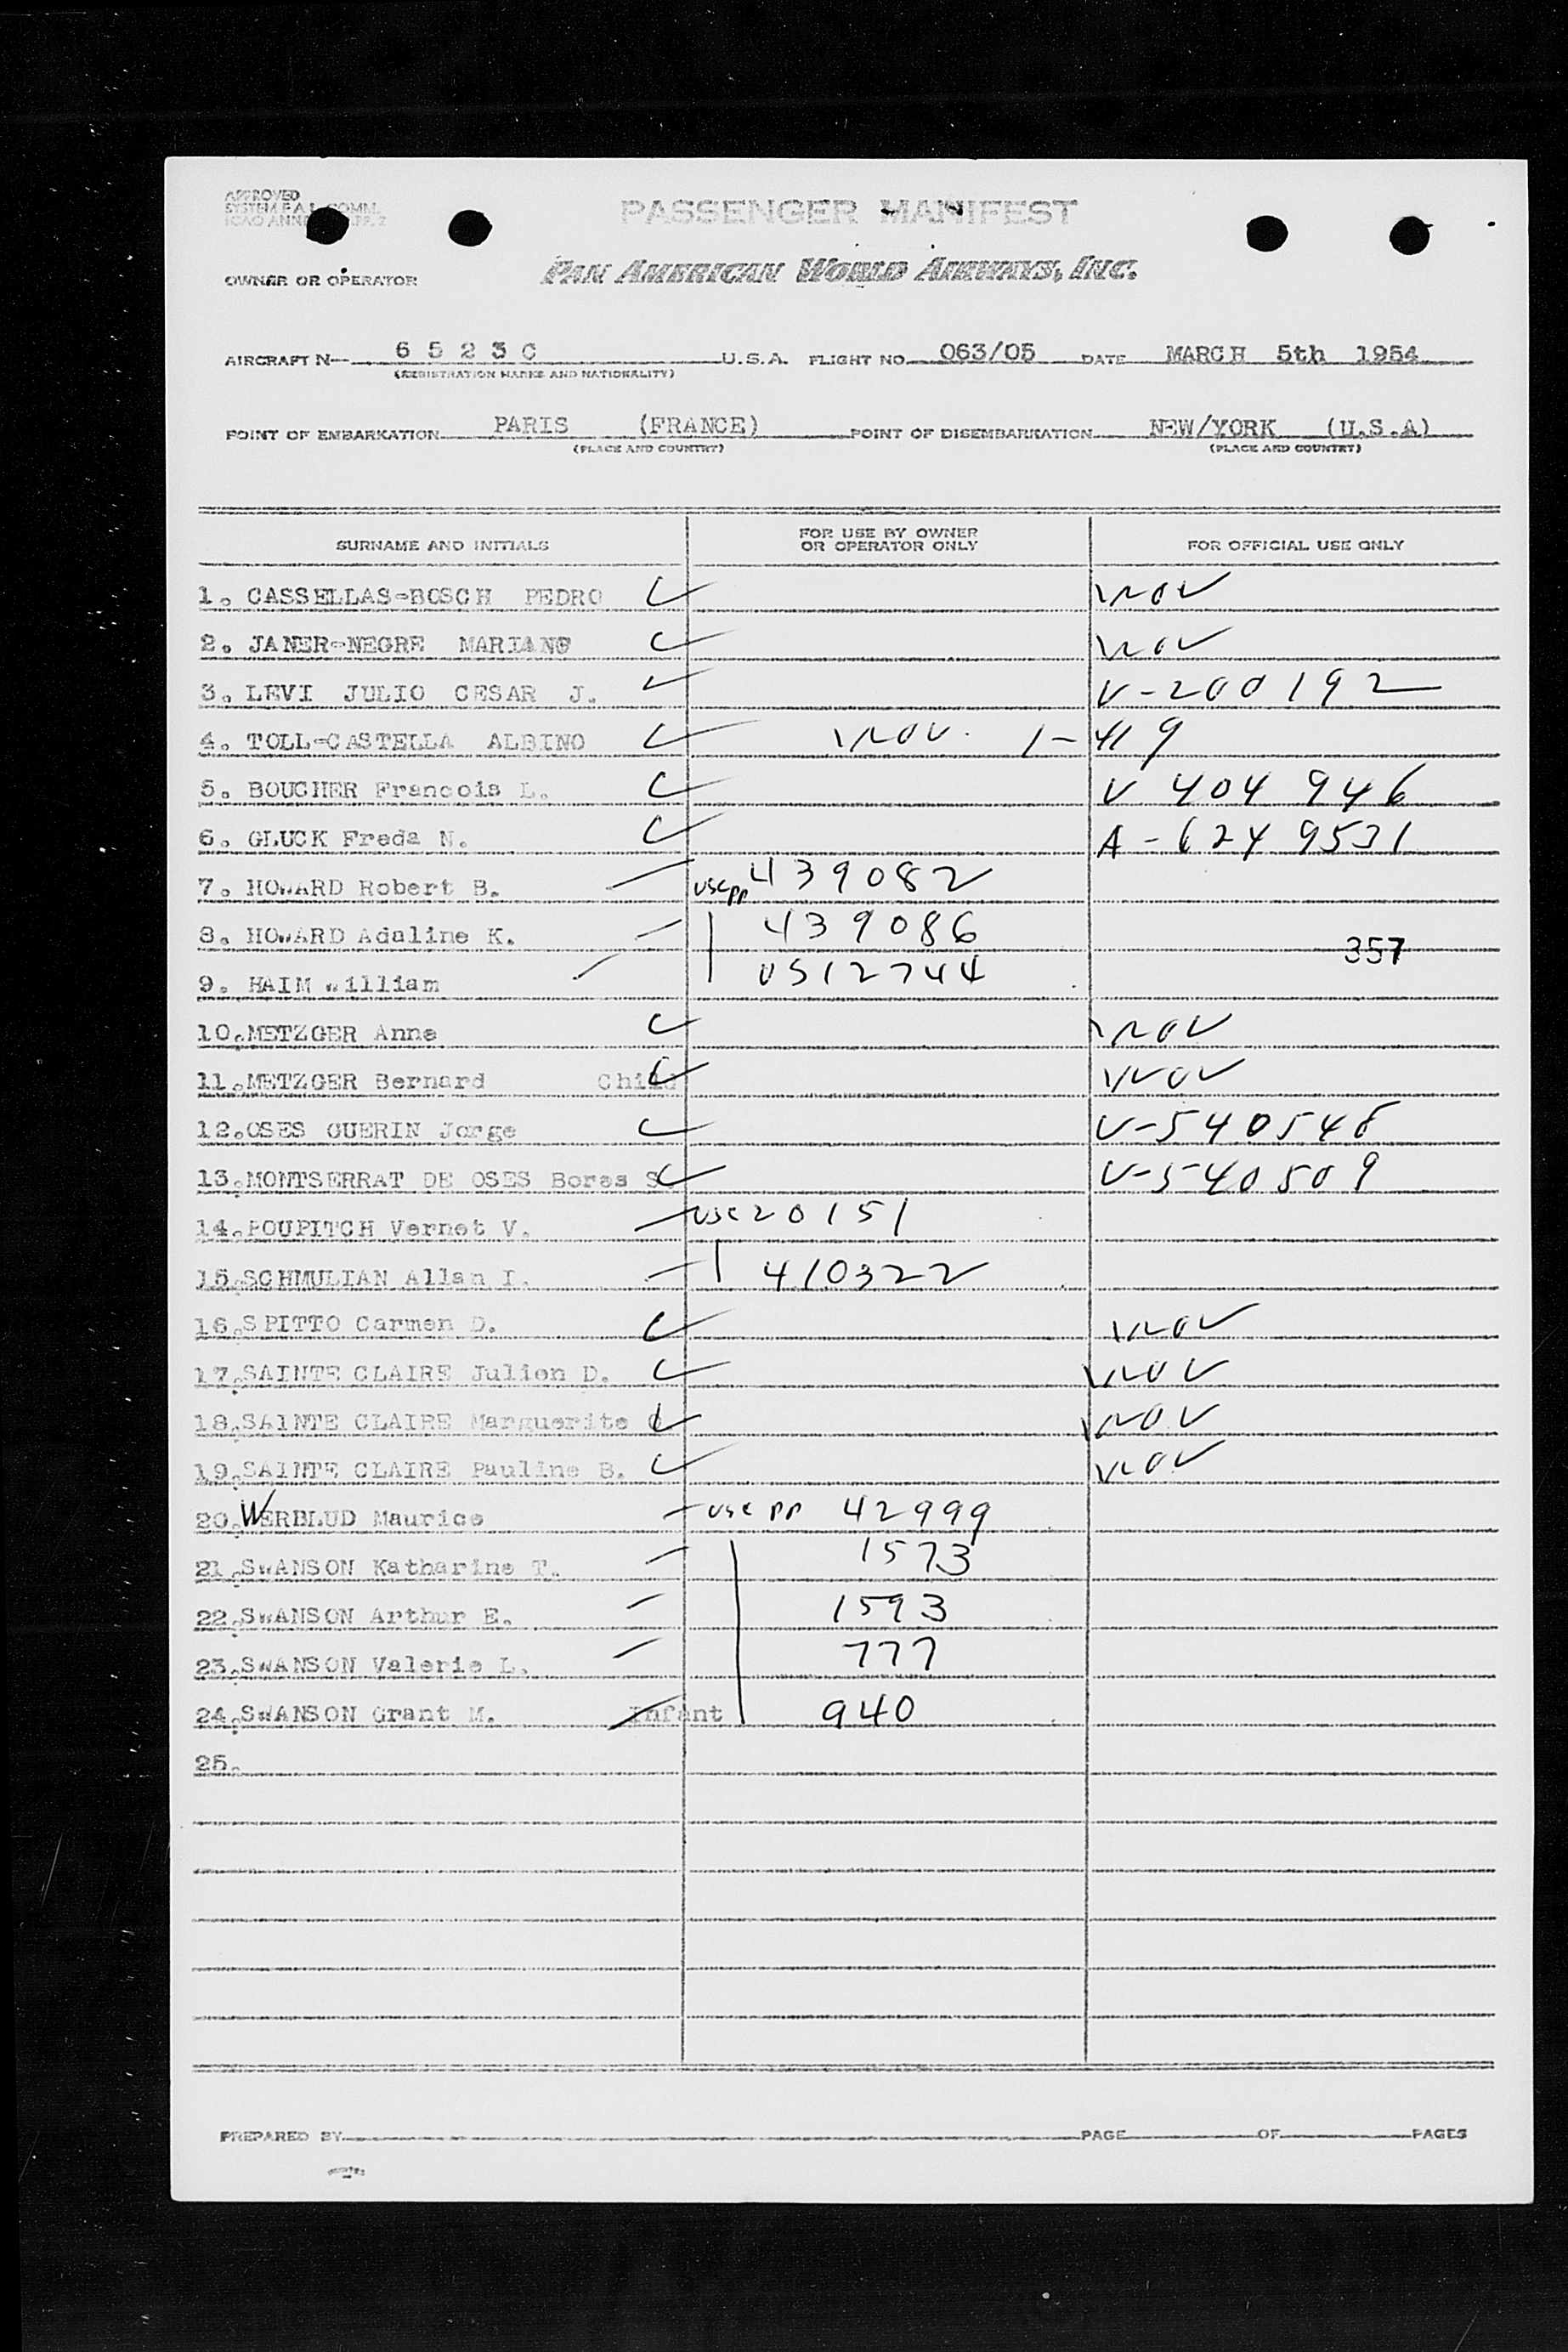 APPROVED
PASSENGER MANIFEST
OWNER OR OPERATOR
PAN AMERICAN WORLD AIRWAYS, INC.
AIRCRAFT N— 6 5 2 3 C U.S.A. FLIGHT NO. 063/05 DATE MARCH 5th 1954
(REGISTRATION MARKS AND NATIONALITY)
POINT OF EMBARKATION PARIS (FRANCE) POINT OF DISEMBARKATION NEW/YORK (U.S.A)
(PLACE AND COUNTRY) (PLACE AND COUNTRY)
SURNAME AND INITIALS FOR USE BY OWNER OR OPERATOR ONLY FOR OFFICIAL USE ONLY
1. CASSELLAS-BOSCH PEDRO
2. JANER-NEGRE MARIANO
3. LEVI JULIO CESAR J. V-200192
4. TOLL-CASTELLA ALBINO 1-419
5. BOUCHER Francois L. V 404 946
6. GLUCK Freda N. A-624 9531
7. HOWARD Robert B. USC pp 439082
8. HOWARD Adaline K. 439086
357
9. HAIM William 0512744
10. METZGER Anne
11. METZGER Bernard Child
12. OSES GUERIN Jorge V-540546
13. MONTSERRAT DE OSES Boras S. V-540509
14. POUPITCH Vernet V. USC 20151
15. SCHMULIAN Allan I. 410322
16. SPITTO Carmen D.
17. SAINTE CLAIRE Julien D.
18. SAINTE CLAIRE Marguerite
19. SAINTE CLAIRE Pauline B.
20. WERBLUD Maurice USC PP 42999
21. SWANSON Katharine T. 1573
22. SWANSON Arthur E. 1593
23. SWANSON Valerie L. 777
24. SWANSON Grant M. Infant 940
25.
PREPARED BY PAGE OF PAGES